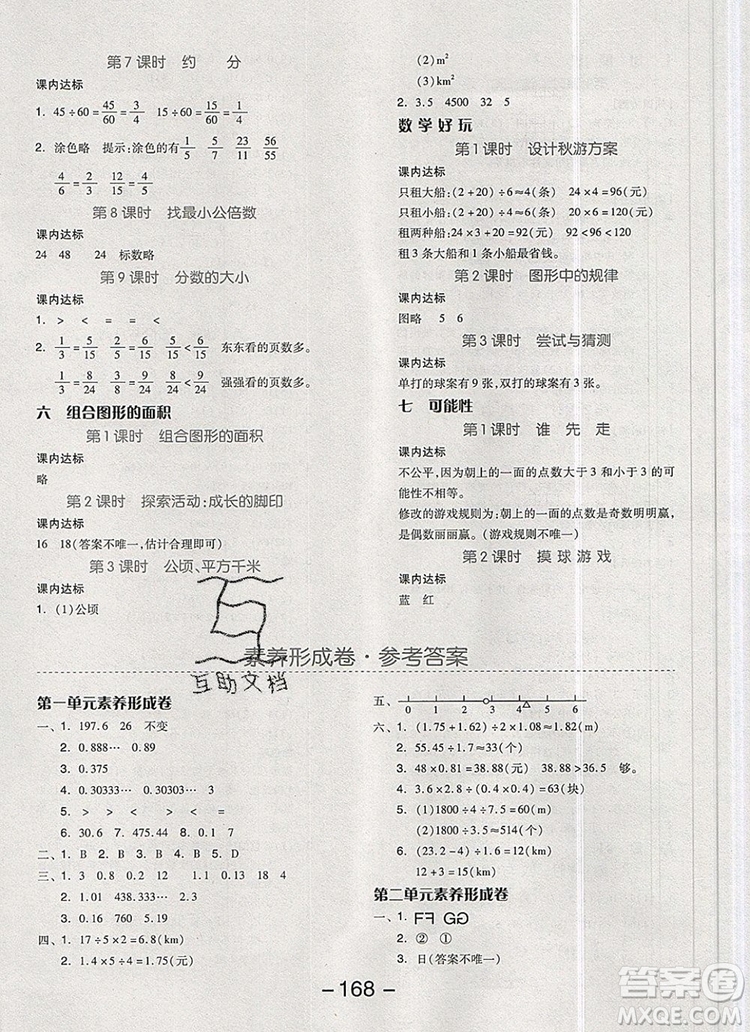 第7课时 约 分
课内达标
1. 45÷60=45/60=3/4 15÷60=15/60=1/4
2. 涂色略 提示:涂色的有1/5 5/7 23/26 56/55
4/6=6/9 12/15=4/5
第8课时 找最小公倍数
课内达标
24 48 24 标数略
第9课时 分数的大小
课内达标
1. > < = = <
2. 1/3=5/15 2/5=6/15 5/15<6/15 东东看的页数多。
1/3=8/24 3/8=9/24 8/24<9/24 强强看的页数多。
六 组合图形的面积
第1课时 组合图形的面积
课内达标
略
第2课时 探索活动:成长的脚印
课内达标
16 18(答案不唯一,估计合理即可)
第3课时 公顷、平方千米
课内达标
1. (1)公顷
(2)m²
(3)km²
2. 3.5 4500 32 5
数学好玩
第1课时 设计秋游方案
课内达标
只租大船:(2+20)÷6≈4(条) 24×4=96(元)
只租小船:(2+20)÷4≈6(条) 20×6=120(元)
租两种船:24×3+20=92(元) 92<96<120
租3条大船和1条小船最省钱。
第2课时 图形中的规律
课内达标
图略 5 6
第3课时 尝试与猜测
课内达标
单打的球案有9张,双打的球案有3张。
七 可能性
第1课时 谁先走
课内达标
不公平,因为朝上的一面的点数大于3和小于3的可
能性不相等。
修改的游戏规则为:朝上的一面的点数是奇数明明赢,
是偶数丽丽赢。(游戏规则不唯一)
第2课时 摸球游戏
课内达标
蓝 红
素养形成卷·参考答案
互助文档
第一单元素养形成卷
一、1. 197.6 26 不变
2. 0.888… 0.89
3. 0.375
4. 0.30333… 0.30303… 3
5. > < < = < >
6. 30.8 7. 475.44 8. 0.1 7
二、1. B 2. B 3. B 4. B 5. D
三、1. 0.3 12 50 1.1 0.13 28 4
2. 1.01 438.3 0.83
3. 0.16 760 5.19
四、1. 17÷5×2=6.8(km)
2. 1.4×5÷4=1.75(元)
五、
0 1 2 3 4 5 6
六、1. (1.75+1.62)÷2×1.08≈1.82(元)
2. 55.45÷1.7≈33(个)
3. 48×0.81=38.88(元) 38.88>36.5 够。
4. 3.6×2.8÷(0.4×0.4)=63(块)
5. (1)1800÷4÷7≈64(个)
(2)1800÷3.5≈514(个)
6. (23.2-4)÷1.6=12(km)
12+3=15(km)
第二单元素养形成卷
一、1.
2. ② ①
3. 日(答案不唯一)
- 168 -
答案圈
MXQE.COM